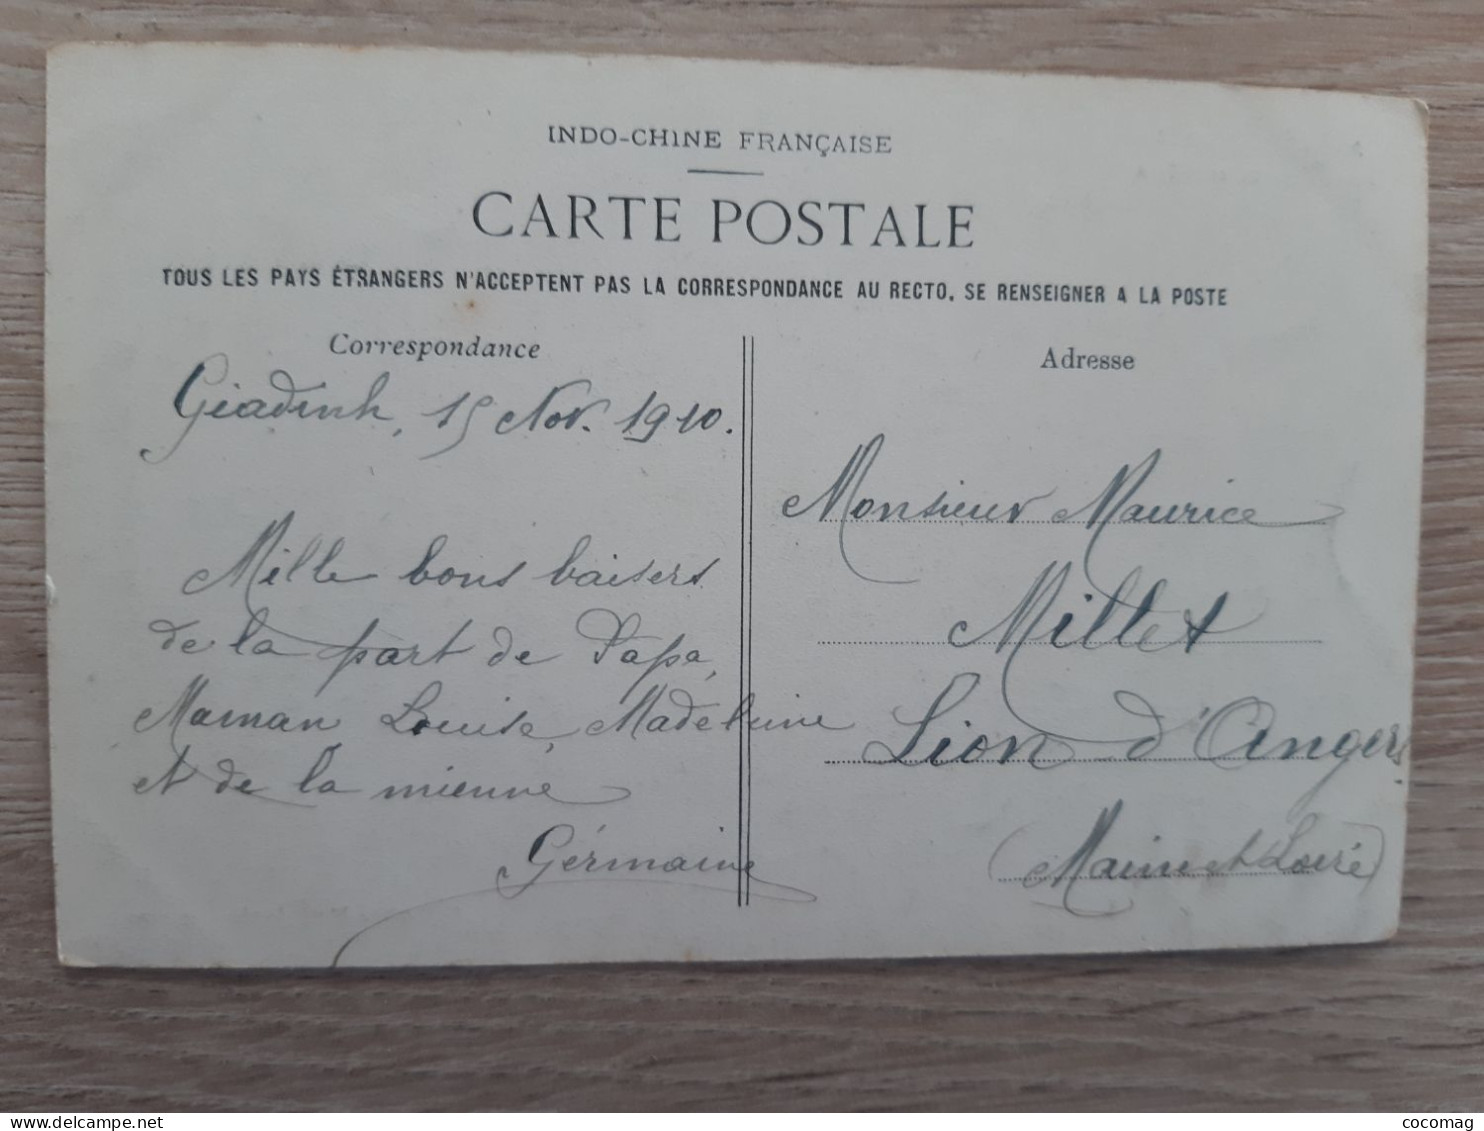 INDO-CHINE FRANÇAISE
CARTE POSTALE
TOUS LES PAYS ÉTRANGERS N'ACCEPTENT PAS LA CORRESPONDANCE AU RECTO. SE RENSEIGNER A LA POSTE
Correspondance
Giadinh, 15 Nov. 1910.
Mille bons baisers
de la part de Papa,
Maman Louise, Madeleine
et de la mienne
Germaine
Adresse
Monsieur Maurice
Millet
Lion d'Angers
(Maine et Loire)
cocomag